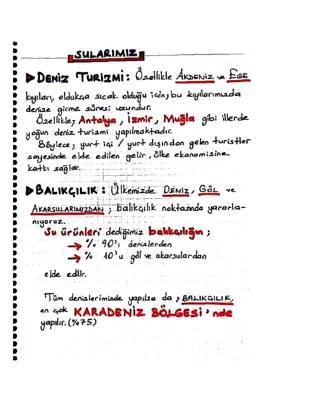 SULARIMIZ
DENİZ TURİZMİ: Özellikle AKDENİZ ve EGE
kıyıları, oldukça sıcak olduğu için; bu kıyılarımızda
denize girme süresi uzundur.
Özellikle; Antalya, İzmir, Muğla gibi illerde
yoğun deniz turizmi yapılmaktadır.
Böylece; yurt içi / yurt dışından gelen turistler
sayesinde elde edilen gelir, ülke ekonomisine
katkı sağlar.
BALIKÇILIK: Ülkemizde DENİZ, GÖL ve
AKARSULARIMIZDAN; balıkçılık noktasında yararla-
nıyoruz.
Su ürünleri dediğimiz balıkçılığın;
→ % 90'ı denizlerden
→ % 40'u göl ve akarsulardan
elde edilir.
Tüm denizlerimizde yapılsa da; BALIKÇILIK,
en çok KARADENİZ BÖLGESİ'nde
yapılır. (%75)